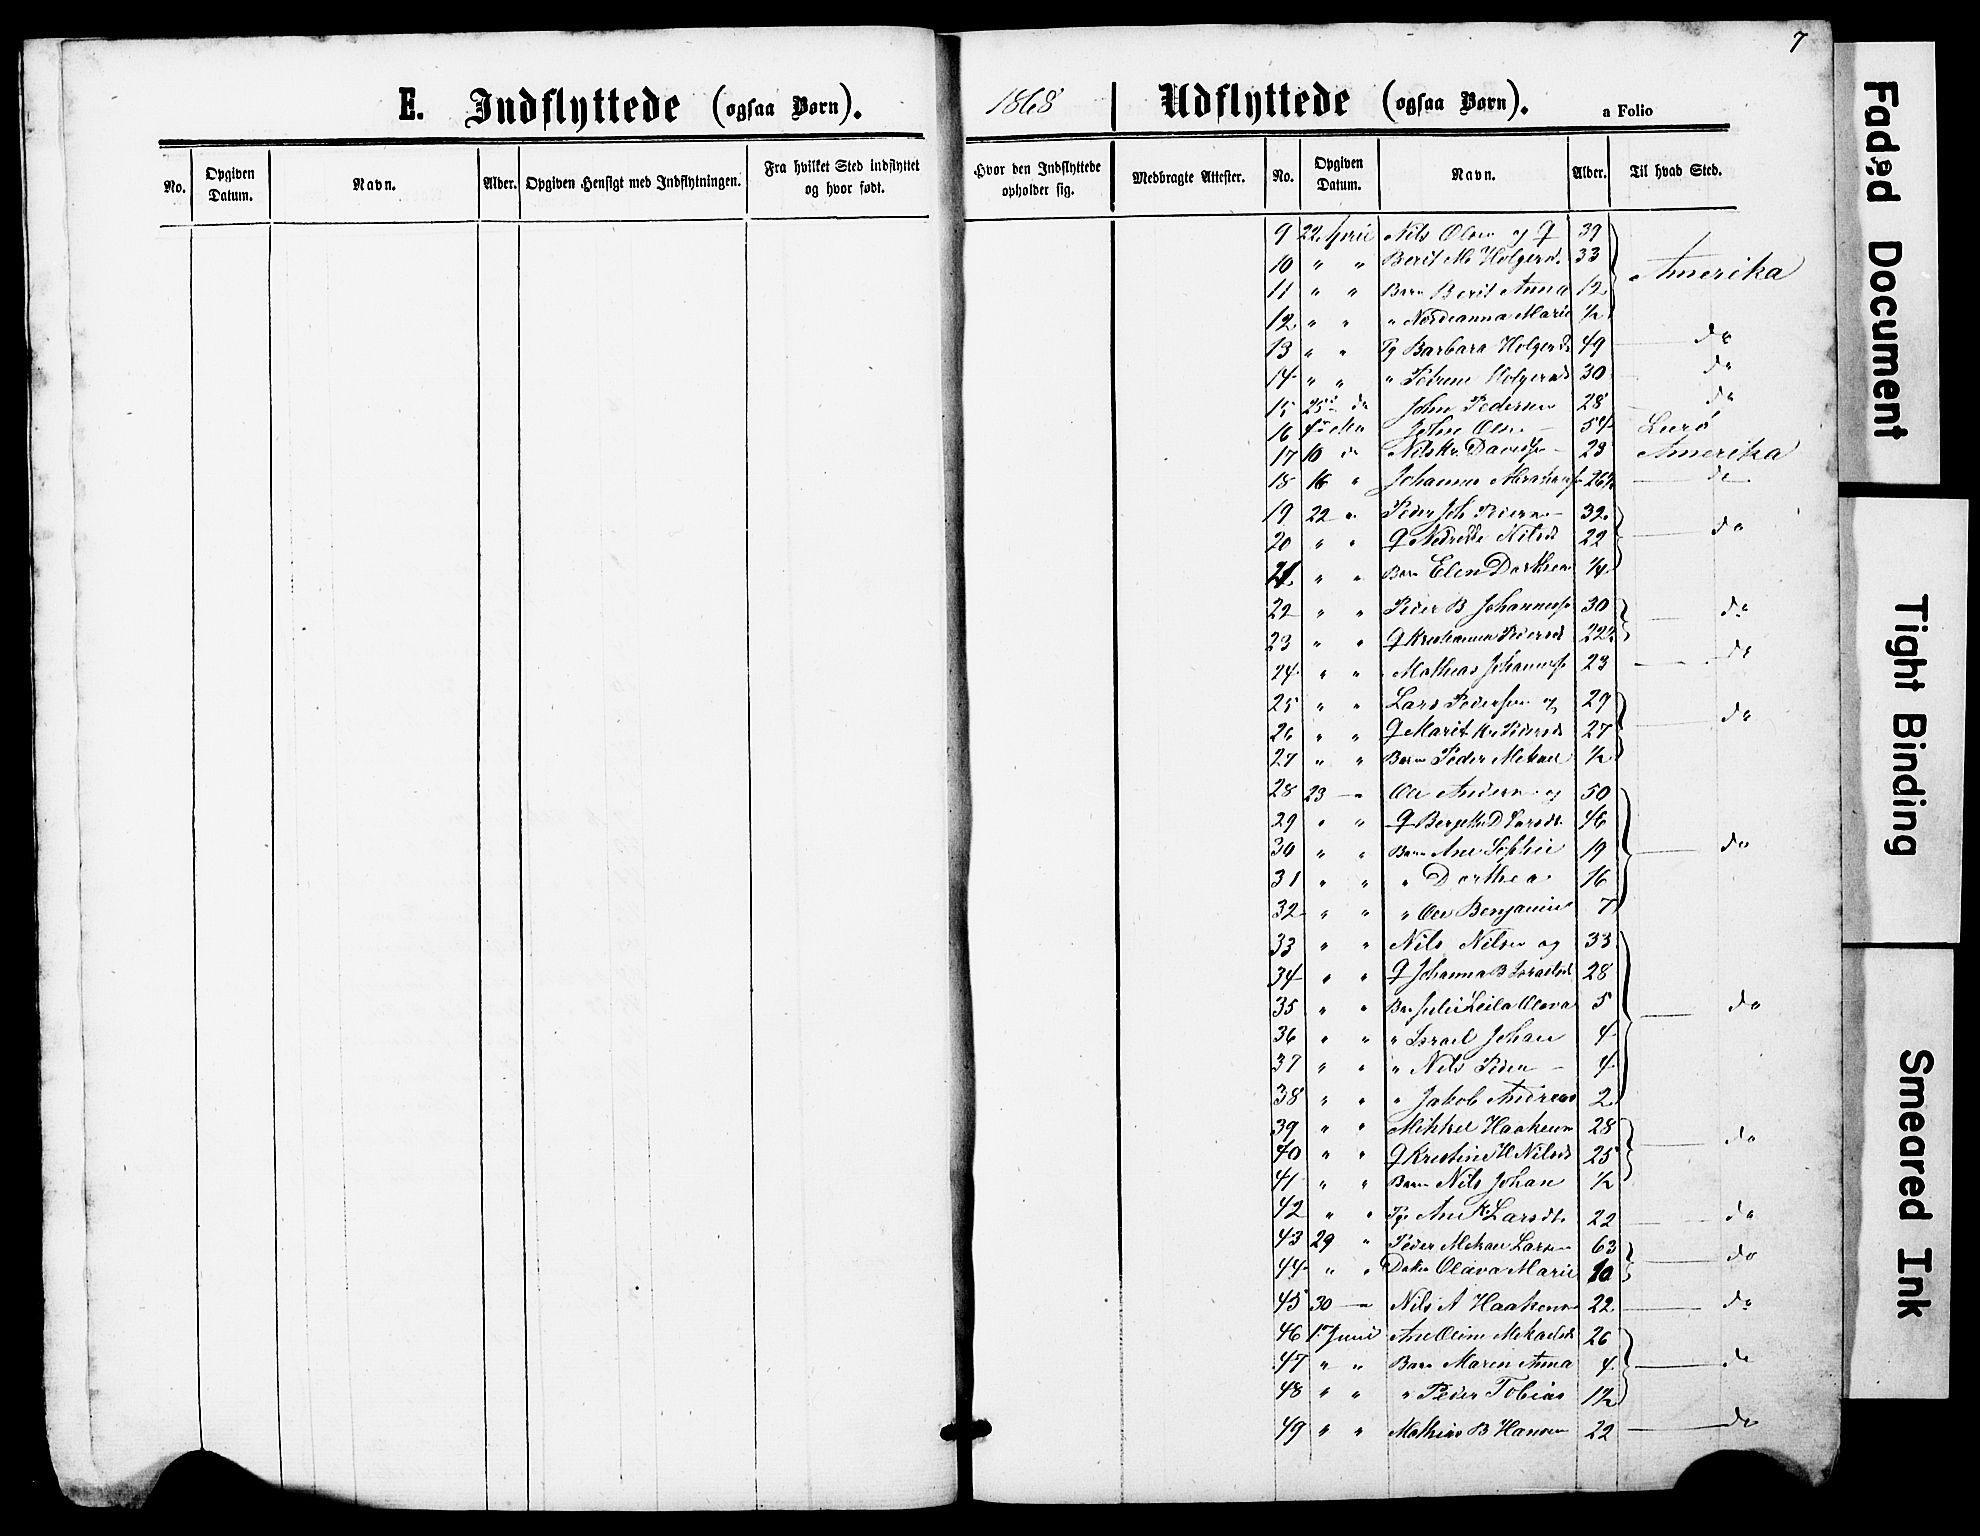 7
E. Indflyttede (ogsaa Børn).
1868
Udflyttede (ogsaa Børn). a Folio
No. Opgiven Datum. Navn. Alder. Opgiven Hensigt med Indflytningen. Fra hvilket Sted indflyttet og hvor født. Hvor den Indflyttede opholder sig. Medbragte Attester. No. Opgiven Datum. Navn. Alder. Til hvad Sted.
9 22 April Nils Olsen og 39
10 " " Berit M. Holgersd. 33 Amerika
11 " " Barn Berit Anna 12
12 " " " Marie ½
13 " " Pg Barbara Holgersd 49 do
14 " " " Holgersd 30 do
15 25 do John Pedersen 28 do
16 John Olsen 54 Lurø
17 10 do Nils Kr. Davidsen 23 Amerika
18 16 " Johannes 26 do
19 22 " Peder Joh 32
20 " " Nilsd 22 do
21 " " Barn Elen Dorthea ¼
22 " " Peder B Johanness 30 do
23 " " 22½
24 " " Mathias Johanness 23 do
25 " " Lars Pedersen og 29
26 " " Marit Kr. Pedersd 27 do
27 " " Barn Peder Mekael ½
28 23 " Ole Andersen og 50
29 " " D Larsdt. 46
30 " " Barn Ane Sophie 19 do
31 " " " Dorthea 16
32 " " " Ole Benjamin 7
33 " " Nils Nilsen og 33
34 " " Johanna B Israelsd 28
35 " " Barn Olava 5 do
36 " " " Israel Johan 4
37 " " " Nils Peder 4
38 " " " Jakob Andreas 2
39 " " Mikkel Haakensen 28
40 " " Kristine H Nilsd 25 do
41 " " Barn Nils Johan ½
42 " " Pg Ane K Larsdt. 22 do
43 29 " Peder Mekael Larsen 63
44 " " Datter Olava Marie 10 do
45 30 " Nils A Haakensen 22 do
46 1 Juni Ane Oline Mekaelsd 26
47 " " Barn Maren Anna 4 do
48 " " " Peder Tobias 1½
49 " " Mathias B Hansen 22 do
Faded Document
Tight Binding
Smeared Ink